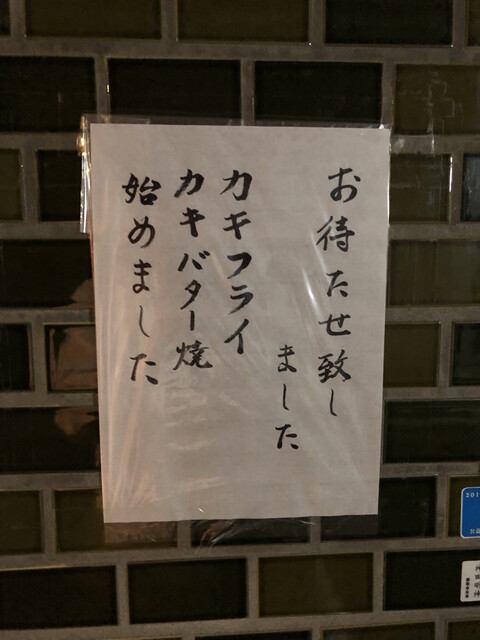 お待たせ致し
ました
カキフライ
カキバター焼
始めました
201
神田明神